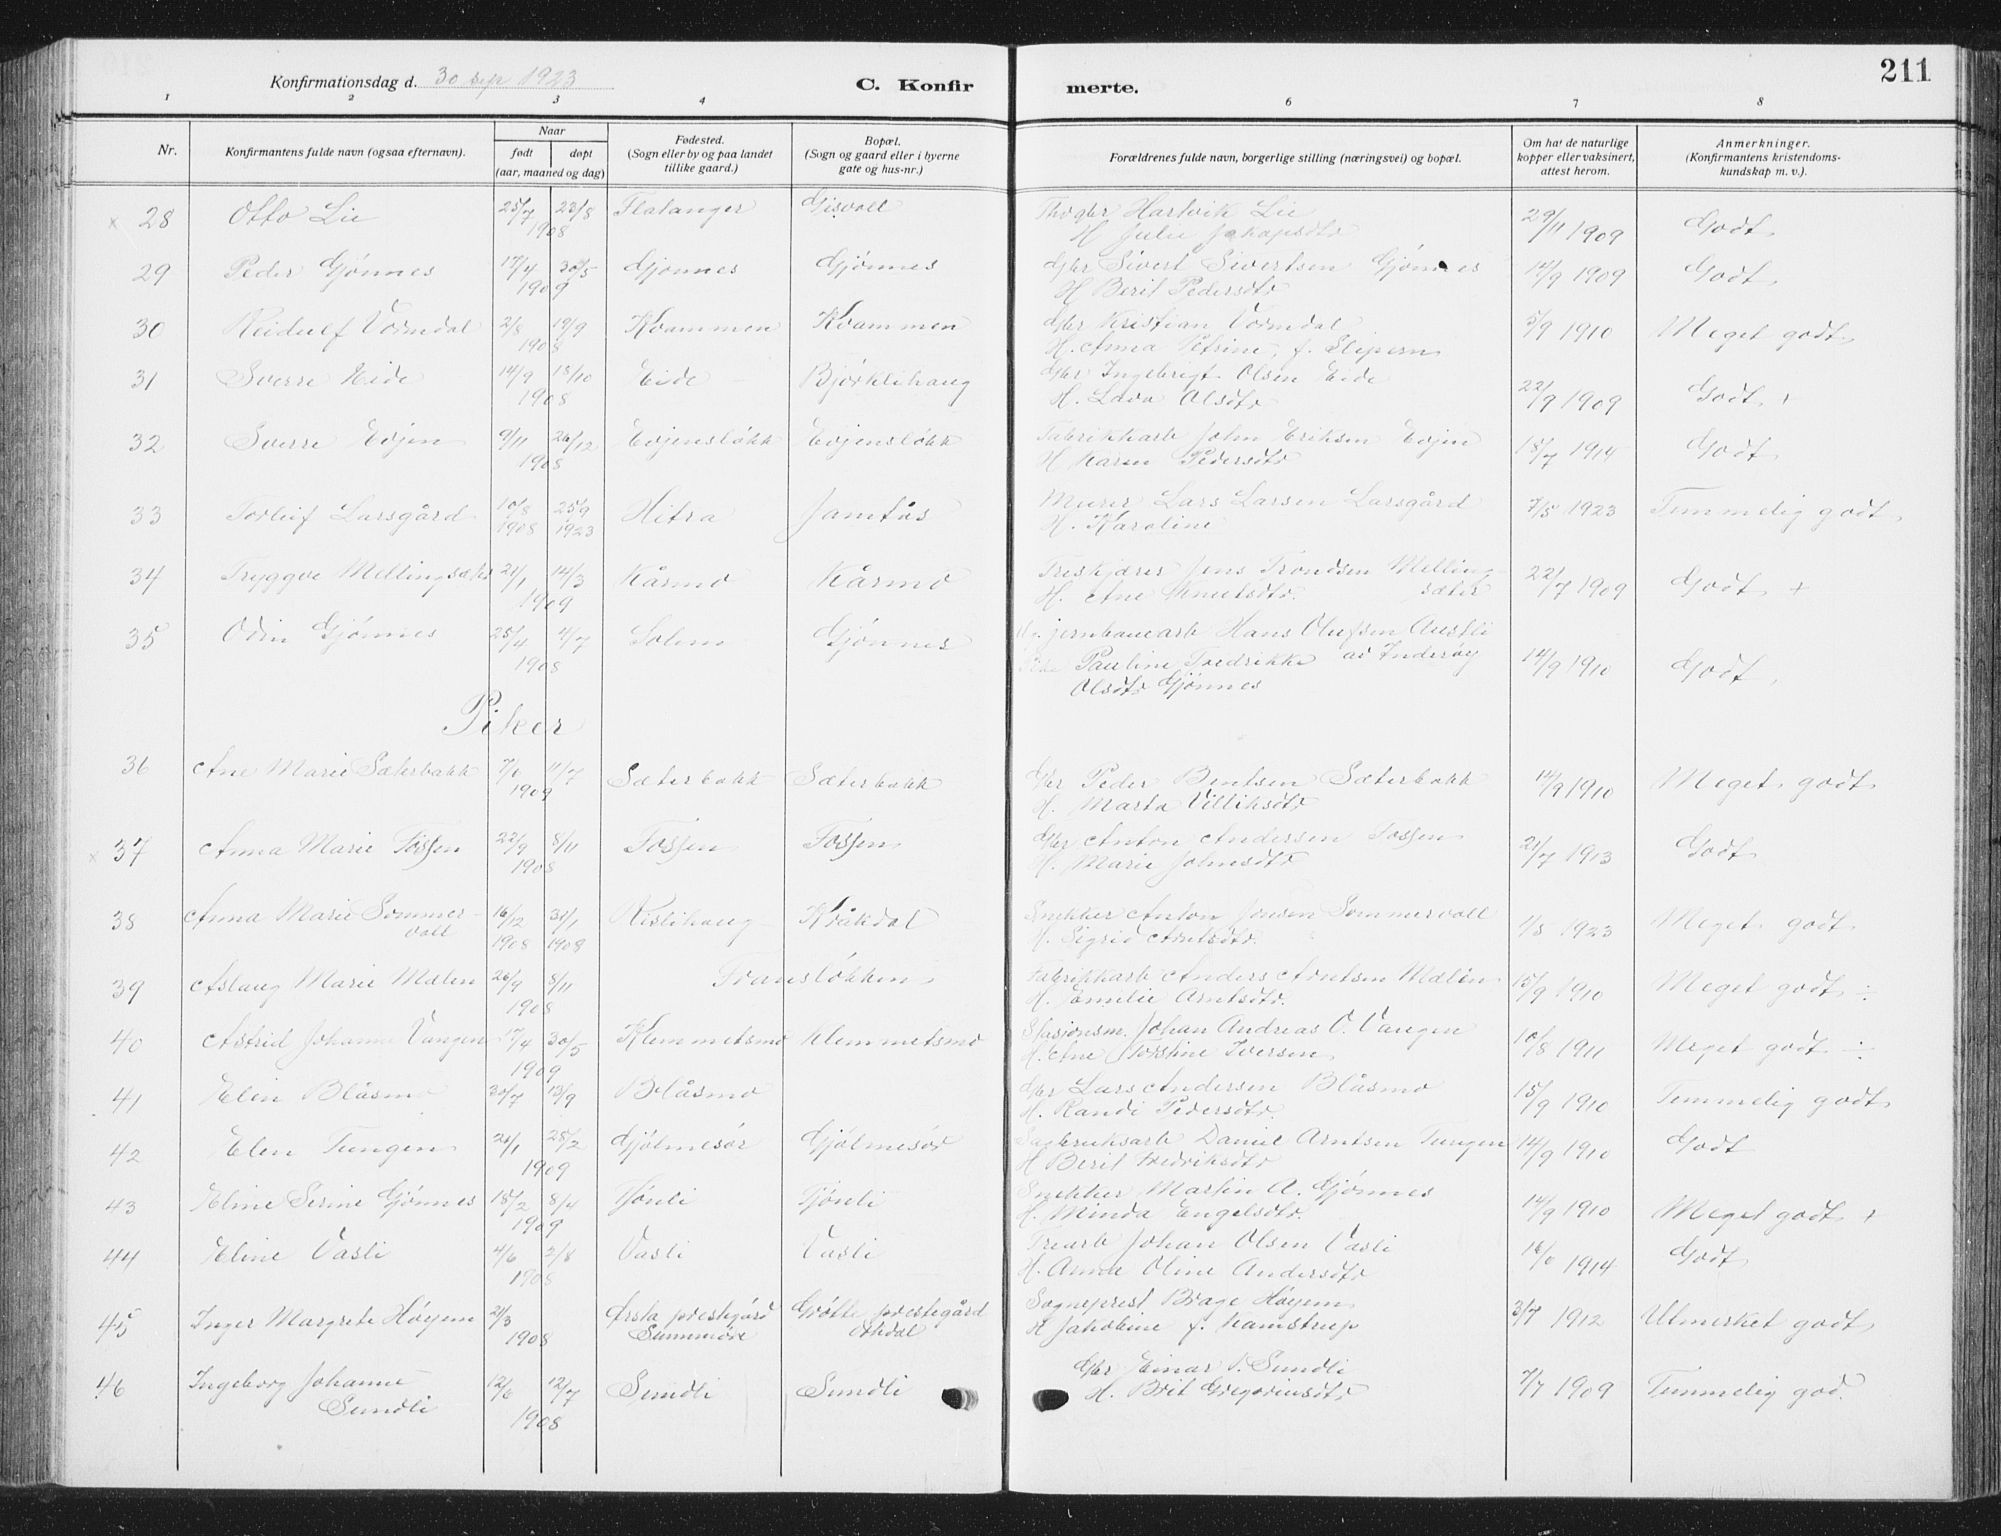 211
Konfirmationsdag d. 30 sep 1923
C. Konfirmerte.
1 2 3 4 6 7 8
Nr. Konfirmantens fulde navn (ogsaa efternavn). Naar født døpt (aar, maaned og dag) Fødested. (Sogn eller by og paa landet tillike gaard.) Bopæl. (Sogn og gaard eller i byerne gate og hus-nr.) Forældrenes fulde navn, borgerlige stilling (næringsvei) og bopæl. Om hat de naturlige kopper eller vaksinert, attest herom. Anmerkninger. (Konfirmantens kristendomskundskap m. v.).
x 28 Otto Lie 25/7 23/8 1908 Flatanger Gisvoll Hartvik Lie 29/11 1909 Godt
H Julie Jakopsdtr
29 Peder Gjønnes 17/4 30/5 1909 Gjønnes Gjønnes Gbr Sivert Sivertsen Gjønnes 14/9 1909 Godt
H Berit Pedersdtr
30 Reidulf Vormdal 2/8 19/9 1908 Kvammen Kvammen Gbr Kristian Vormdal 5/9 1910 Meget godt
H. Anna Petrine, f.
31 Sverre Eide 14/9 18/10 1908 Eide Bjørklihaug Gbr Ingebrigt Olsen Eide 22/9 1909 Godt +
H. Lava Olsdtr
32 Sverre Evjen 9/11 26/12 1908 Evjensløkk Evjensløkk Fabrikkarb John Eriksen Evjen 18/7 1914 Godt
H Karen Pedersdtr
33 Torleif Larsgård 10/8 1908 25/9 1923 Hitra Jamtås Murer Lars Larsen Larsgård 7/5 1923 Temmelig godt
H. Karoline
34 Tryggve Mellingsæter 21/1 14/3 1909 Kårmo Kårmo Treskjærer Jens Trondsen Mellingsæter 22/7 1909 Godt +
H. Ane Knutsdtr.
35 Odin Gjønnes 25/4 4/7 1908 Solem Gjønnes jernbanearb Hans Olufsen Austli 14/9 1910 Godt
Pauline Fredrikke av Inderøy
Olsdtr Gjønnes
Piker
36 Ane Marie Sæterbakk 7/6 11/7 1909 Sæterbakk Sæterbakk Gbr Peder Bentsen Sæterbakk 14/9 1910 Meget godt
H. Marta Villiksdtr
x 37 Anna Marie Fossen 22/9 8/11 1908 Fossen Fossen Gbr Anton Andersen Fossen 21/7 1913 Godt
H. Marie Johnsdtr
38 Anna Marie Sommervoll 16/12 1908 31/1 1908 Rislihaug Kråkdal Snekker Anton Jonsen Sommervoll 1/5 1923 Meget godt
H. Sigrid Arntsdtr.
39 Aslaug Marie Mælen 26/9 8/11 1908 Fransløkken Fabrikkarb Anders Arntsen Mælen 15/9 1910 Meget godt ÷
H. Emilie Arntsdtr.
40 Astrid Johanne Vangen 17/4 30/5 1909 Klemmetsmo Klemmetsmo Stasjonsm. Johan Andreas O. Vangen 10/8 1911 Meget godt ÷
H. Ane Torstine Iversen
41 Elen Blåsmo 30/7 13/9 Blåsmo Gbr Lars Andersen Blåsmo 15/9 1910 Temmelig godt
H. Randi Pedersdtr.
42 Elen Tungen 21/1 25/2 1909 Gjølmesør Gjølmesør Sagbruksarb Daniel Arntsen Tungen 14/9 1910 Godt
H Berit Fredriksdtr
43 Eline Serine Gjønnes 15/2 8/4 1909 Tjønli Tjønli Snekker Martin A. Gjønnes 14/9 1910 Meget godt +
H. Minda Engelsdtr.
44 Eline Vasli 4/6 2/8 1908 Vasli Vasli Trearb Johan Olsen Vasli 1914 Godt
H. Anne Oline Andersdtr
45 Inger Margrete Høyem 21/3 1908 Ørsta prestegård Sunnmøre Grøtte prestegård Orkdal Sogneprest Brage Høyem 3/7 1912 Utmerket godt
H Jakobine f. Kamstrup
46 Ingeborg Johanne Sundli 12/6 12/7 1908 Sundli Sundli Gbr Einar Sundli 7/7 1909 Temmelig god.
H. Brit Gregoriusdtr